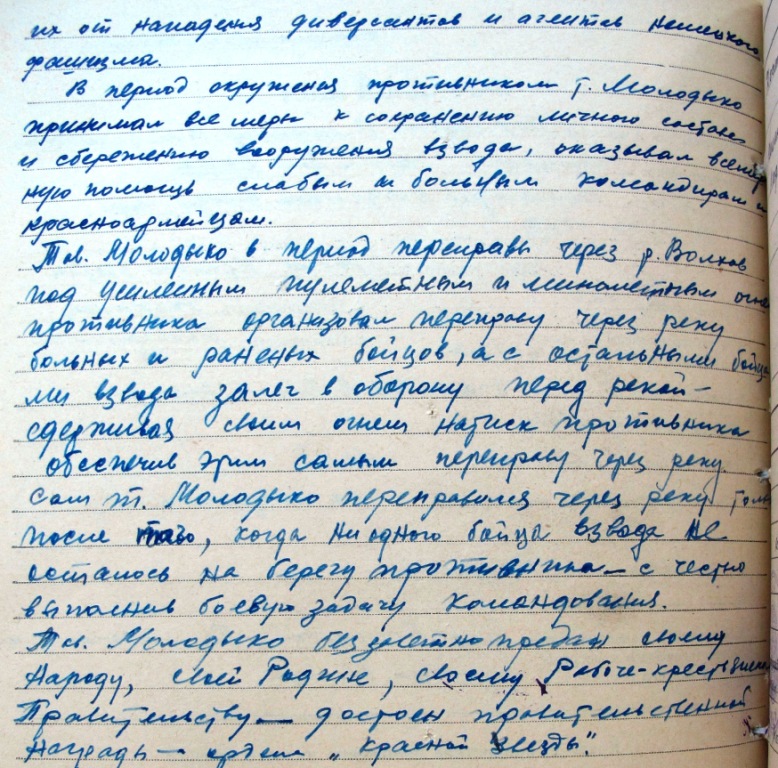 их от нападения диверсантов и агентов немецкого
фашизма.
В период окружения противником т. Молодыко
принимал все меры к сохранению личного состава
и сбережению вооружения взвода, оказывал всемер
ную помощь слабым и больным командирам и
красноармейцам.
Тов. Молодыко в период переправы через р. Волхов
под усиленным пулеметным и минометным огнем
противника организовал переправу через реку
больных и раненых бойцов, а с остальными бойца
ми взвода залег в оборону перед рекой –
сдерживая своим огнем натиск противника
обеспечив этим самым переправу через реку.
Сам т. Молодыко переправился через реку только
после того, когда ни одного бойца взвода не
осталось на берегу противника – с честью
выполнив боевую задачу командования.
Тов. Молодыко беззаветно предан своему
народу, своей Родине, своему Рабоче-крестьянскому
Правительству – достоен правительственной
награды – ордена „Красной Звезды".